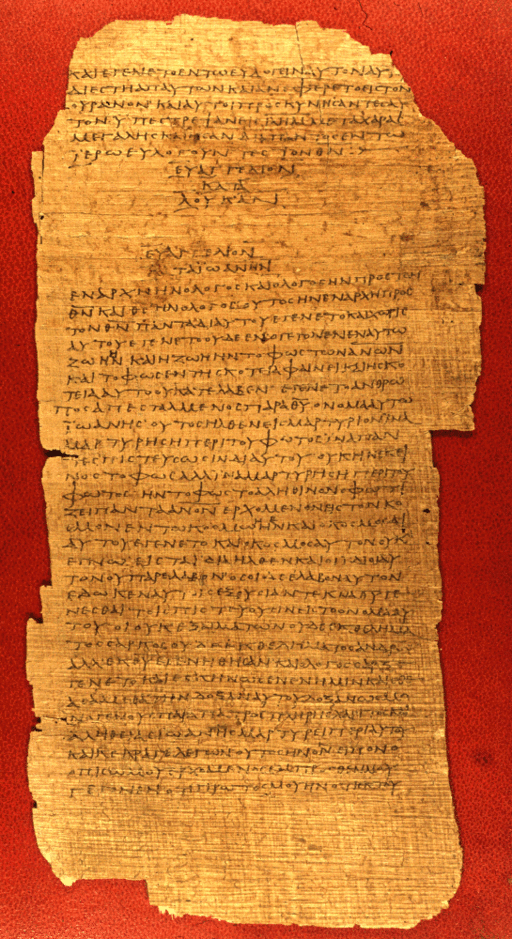 ΚΑΙ ΕΓΕΝΕΤΟ ΕΝ ΤΩ ΕΥΛΟΓΕΙΝ ΑΥΤΟΝ ΑΥ
ΔΙΕϹΤΗ ΑΠ ΑΥΤΩΝ ΚΑΙ ΑΝΕΦΕΡΕΤΟ ΕΙϹ ΤΟΝ
ΟΥΡΑΝΟΝ ΚΑΙ ΑΥΤΟΙ ΠΡΟϹΚΥΝΗϹΑΝΤΕϹ ΑΥ
ΤΟΝ ΥΠΕϹΤΡΕΨΑΝ ΕΙϹ ΙΕΡΟΥϹΑΛΗΜ ΜΕΤΑ ΧΑΡΑϹ
ΜΕΓΑΛΗϹ ΚΑΙ ΗϹΑΝ ΔΙΑ ΠΑΝΤΟϹ ΕΝ ΤΩ
ΙΕΡΩ ΕΥΛΟΓΟΥΝΤΕϹ ΤΟΝ Θ̅Ν̅
ΕΥΑΓΓΕΛΙΟΝ
ΚΑΤΑ
ΛΟΥΚΑΝ
ΕΥΑΓΓΕΛΙΟΝ
ΚΑΤΑ ΙΩΑΝΗΝ
ΕΝ ΑΡΧΗ ΗΝ Ο ΛΟΓΟϹ ΚΑΙ Ο ΛΟΓΟϹ ΗΝ ΠΡΟϹ ΤΟΝ
Θ̅Ν̅ ΚΑΙ Θ̅Ϲ̅ ΗΝ Ο ΛΟΓΟϹ ΟΥΤΟϹ ΗΝ ΕΝ ΑΡΧΗ ΠΡΟϹ
ΤΟΝ Θ̅Ν̅ ΠΑΝΤΑ ΔΙ ΑΥΤΟΥ ΕΓΕΝΕΤΟ ΚΑΙ ΧΩΡΙϹ
ΑΥΤΟΥ ΕΓΕΝΕΤΟ ΟΥΔΕ ΕΝ Ο ΓΕΓΟΝΕΝ ΕΝ ΑΥΤΩ
ΖΩΗ ΗΝ ΚΑΙ Η ΖΩΗ ΗΝ ΤΟ ΦΩϹ ΤΩΝ Α̅Ν̅Ω̅Ν̅
ΚΑΙ ΤΟ ΦΩϹ ΕΝ ΤΗ ϹΚΟΤΕΙΑ ΦΑΙΝΕΙ ΚΑΙ Η ϹΚΟ
ΤΕΙΑ ΑΥΤΟ ΟΥ ΚΑΤΕΛΑΒΕΝ ΕΓΕΝΕΤΟ ΑΝΘΡΩ
ΠΟϹ ΑΠΕϹΤΑΛΜΕΝΟϹ ΠΑΡΑ Θ̅Υ̅ ΟΝΟΜΑ ΑΥΤΩ
ΙΩΑΝΗϹ ΟΥΤΟϹ ΗΛΘΕΝ ΕΙϹ ΜΑΡΤΥΡΙΑΝ ΙΝΑ
ΜΑΡΤΥΡΗϹΗ ΠΕΡΙ ΤΟΥ ΦΩΤΟϹ ΙΝΑ ΠΑΝ
ΤΕϹ ΠΙϹΤΕΥϹΩϹΙΝ ΔΙ ΑΥΤΟΥ ΟΥΚ ΗΝ ΕΚΕΙ
ΝΟϹ ΤΟ ΦΩϹ ΑΛΛ ΙΝΑ ΜΑΡΤΥΡΗϹΗ ΠΕΡΙ ΤΟΥ
ΦΩΤΟϹ ΗΝ ΤΟ ΦΩϹ ΤΟ ΑΛΗΘΙΝΟΝ Ο ΦΩΤΙ
ΖΕΙ ΠΑΝΤΑ Α̅Ν̅Ο̅Ν̅ ΕΡΧΟΜΕΝΟΝ ΕΙϹ ΤΟΝ ΚΟ
ϹΜΟΝ ΕΝ ΤΩ ΚΟϹΜΩ ΗΝ ΚΑΙ Ο ΚΟϹΜΟϹ ΔΙ
ΑΥΤΟΥ ΕΓΕΝΕΤΟ ΚΑΙ Ο ΚΟϹΜΟϹ ΑΥΤΟΝ ΟΥΚ
ΕΓΝΩ ΕΙϹ ΤΑ ΙΔΙΑ ΗΛΘΕΝ ΚΑΙ ΟΙ ΙΔΙΟΙ ΑΥ
ΤΟΝ ΟΥ ΠΑΡΕΛΑΒΟΝ ΟϹΟΙ ΔΕ ΕΛΑΒΟΝ ΑΥΤΟΝ
ΕΔΩΚΕΝ ΑΥΤΟΙϹ ΕΞΟΥϹΙΑΝ ΤΕΚΝΑ Θ̅Υ̅ ΓΕ
ΝΕϹΘΑΙ ΤΟΙϹ ΠΙϹΤΕΥΟΥϹΙΝ ΕΙϹ ΤΟ ΟΝΟΜΑ ΑΥ
ΤΟΥ ΟΙ ΟΥΚ ΕΞ ΑΙΜΑΤΩΝ ΟΥΔΕ ΕΚ ΘΕΛΗΜΑ
ΤΟϹ ϹΑΡΚΟϹ ΟΥΔΕ ΕΚ ΘΕΛΗΜΑΤΟϹ ΑΝΔΡΟϹ
ΑΛΛ ΕΚ Θ̅Υ̅ ΕΓΕΝΗΘΗϹΑΝ ΚΑΙ Ο ΛΟΓΟϹ ϹΑΡΞ Ε
ΓΕΝΕΤΟ ΚΑΙ ΕϹΚΗΝΩϹΕΝ ΕΝ ΗΜΙΝ ΚΑΙ ΕΘΕ
ΑϹΑΜΕΘΑ ΤΗΝ ΔΟΞΑΝ ΑΥΤΟΥ ΔΟΞΑΝ ΩϹ ΜΟ
ΝΟΓΕΝΟΥϹ ΠΑΡΑ ΠΑΤΡΟϹ ΠΛΗΡΗϹ ΧΑΡΙΤΟϹ ΚΑΙ
ΑΛΗΘΕΙΑϹ ΙΩΑΝΗϹ ΜΑΡΤΥΡΕΙ ΠΕΡΙ ΑΥΤΟΥ
ΚΑΙ ΚΕΚΡΑΓΕ ΛΕΓΩΝ ΟΥΤΟϹ ΗΝ ΟΝ ΕΙΠΟΝ Ο
ΟΠΙϹΩ ΜΟΥ ΕΡΧΟΜΕΝΟϹ ΕΜΠΡΟϹΘΕΝ ΜΟΥ
ΓΕΓΟΝΕΝ ΟΤΙ ΠΡΩΤΟϹ ΜΟΥ ΗΝ ΟΤΙ ΕΚ ΤΟΥ